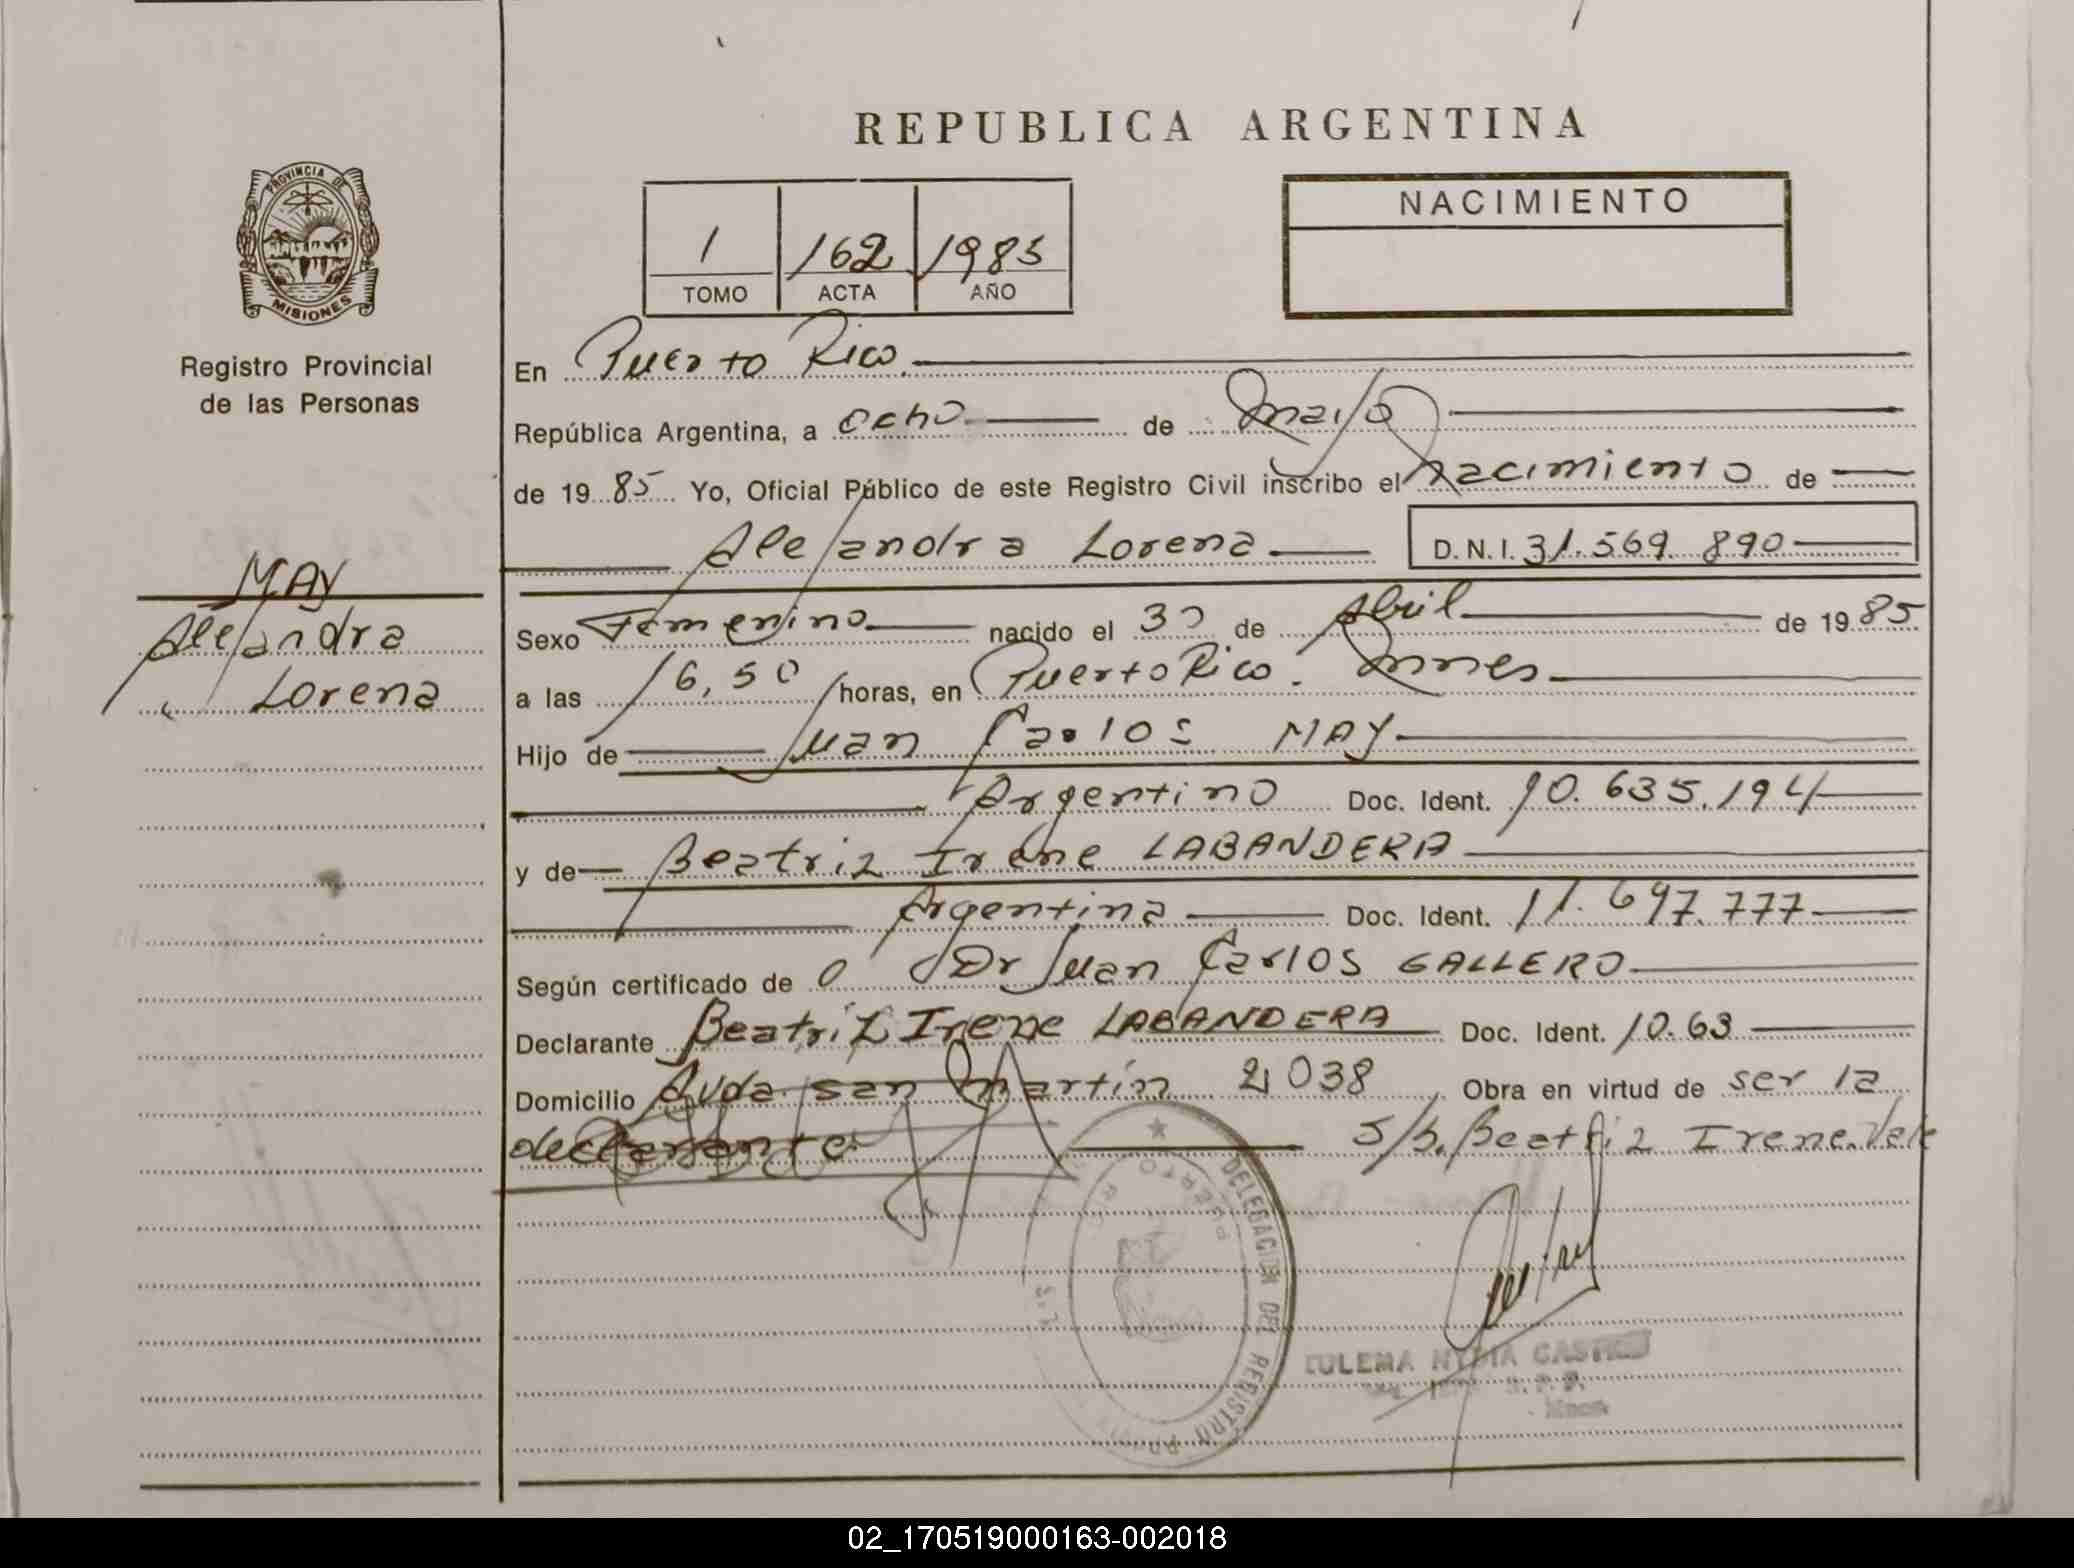 REPUBLICA ARGENTINA
PROVINCIA DE
MISIONES
Registro Provincial
de las Personas
MAY
Alejandra
Lorena
1 162 1985
TOMO ACTA AÑO
NACIMIENTO
En Puerto Rico.
República Argentina, a ocho de mayo
de 19 85 Yo, Oficial Público de este Registro Civil inscribo el nacimiento de
Alejandra Lorena D.N.I. 31.569.890
Sexo Femenino nacido el 30 de Abril de 19 85
a las 16,50 horas, en Puerto Rico. Mnes
Hijo de Juan Carlos MAY
Argentino Doc. Ident. 10.635.194
y de Beatriz Irene LABANDERA
Argentina Doc. Ident. 11.697.777
Según certificado de O Dr Juan Carlos GALLERO
Declarante Beatriz Irene LABANDERA Doc. Ident. 10.63
Domicilio Avda san Martín 2038 Obra en virtud de ser la
declarante S/b. Beatriz Irene. Vale
DELEGACION DEL REGISTRO
PUERTO RICO
NYDIA CASTRO
02_170519000163-002018